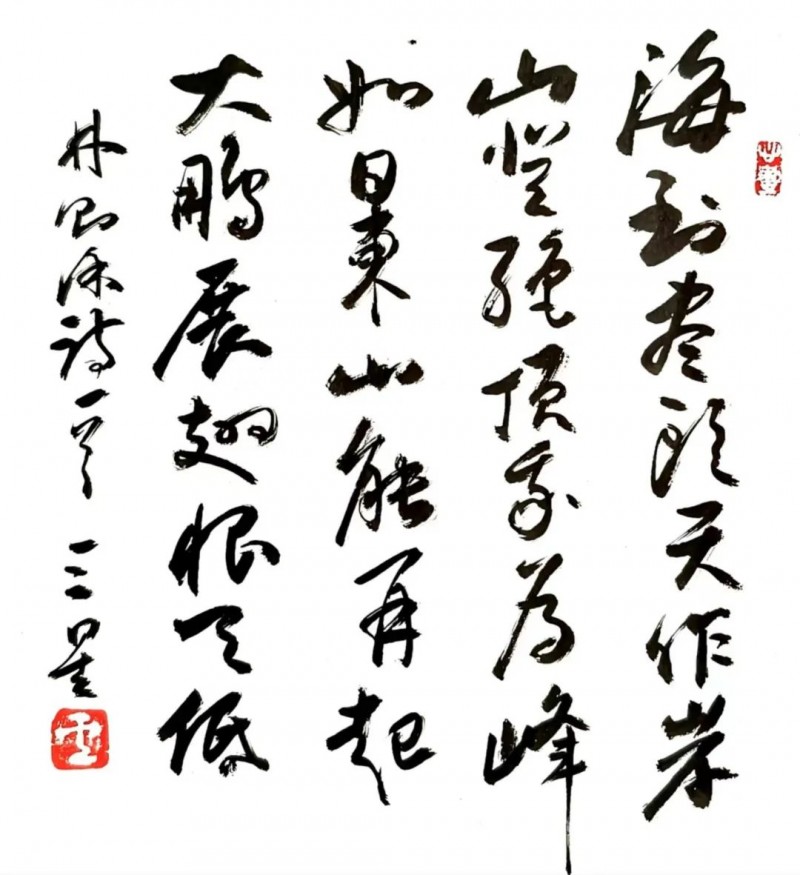 海到尽头天作岸
山登绝顶我为峰
如日東山能再起
大鹏展翅恨天低
林则徐诗一首 三星